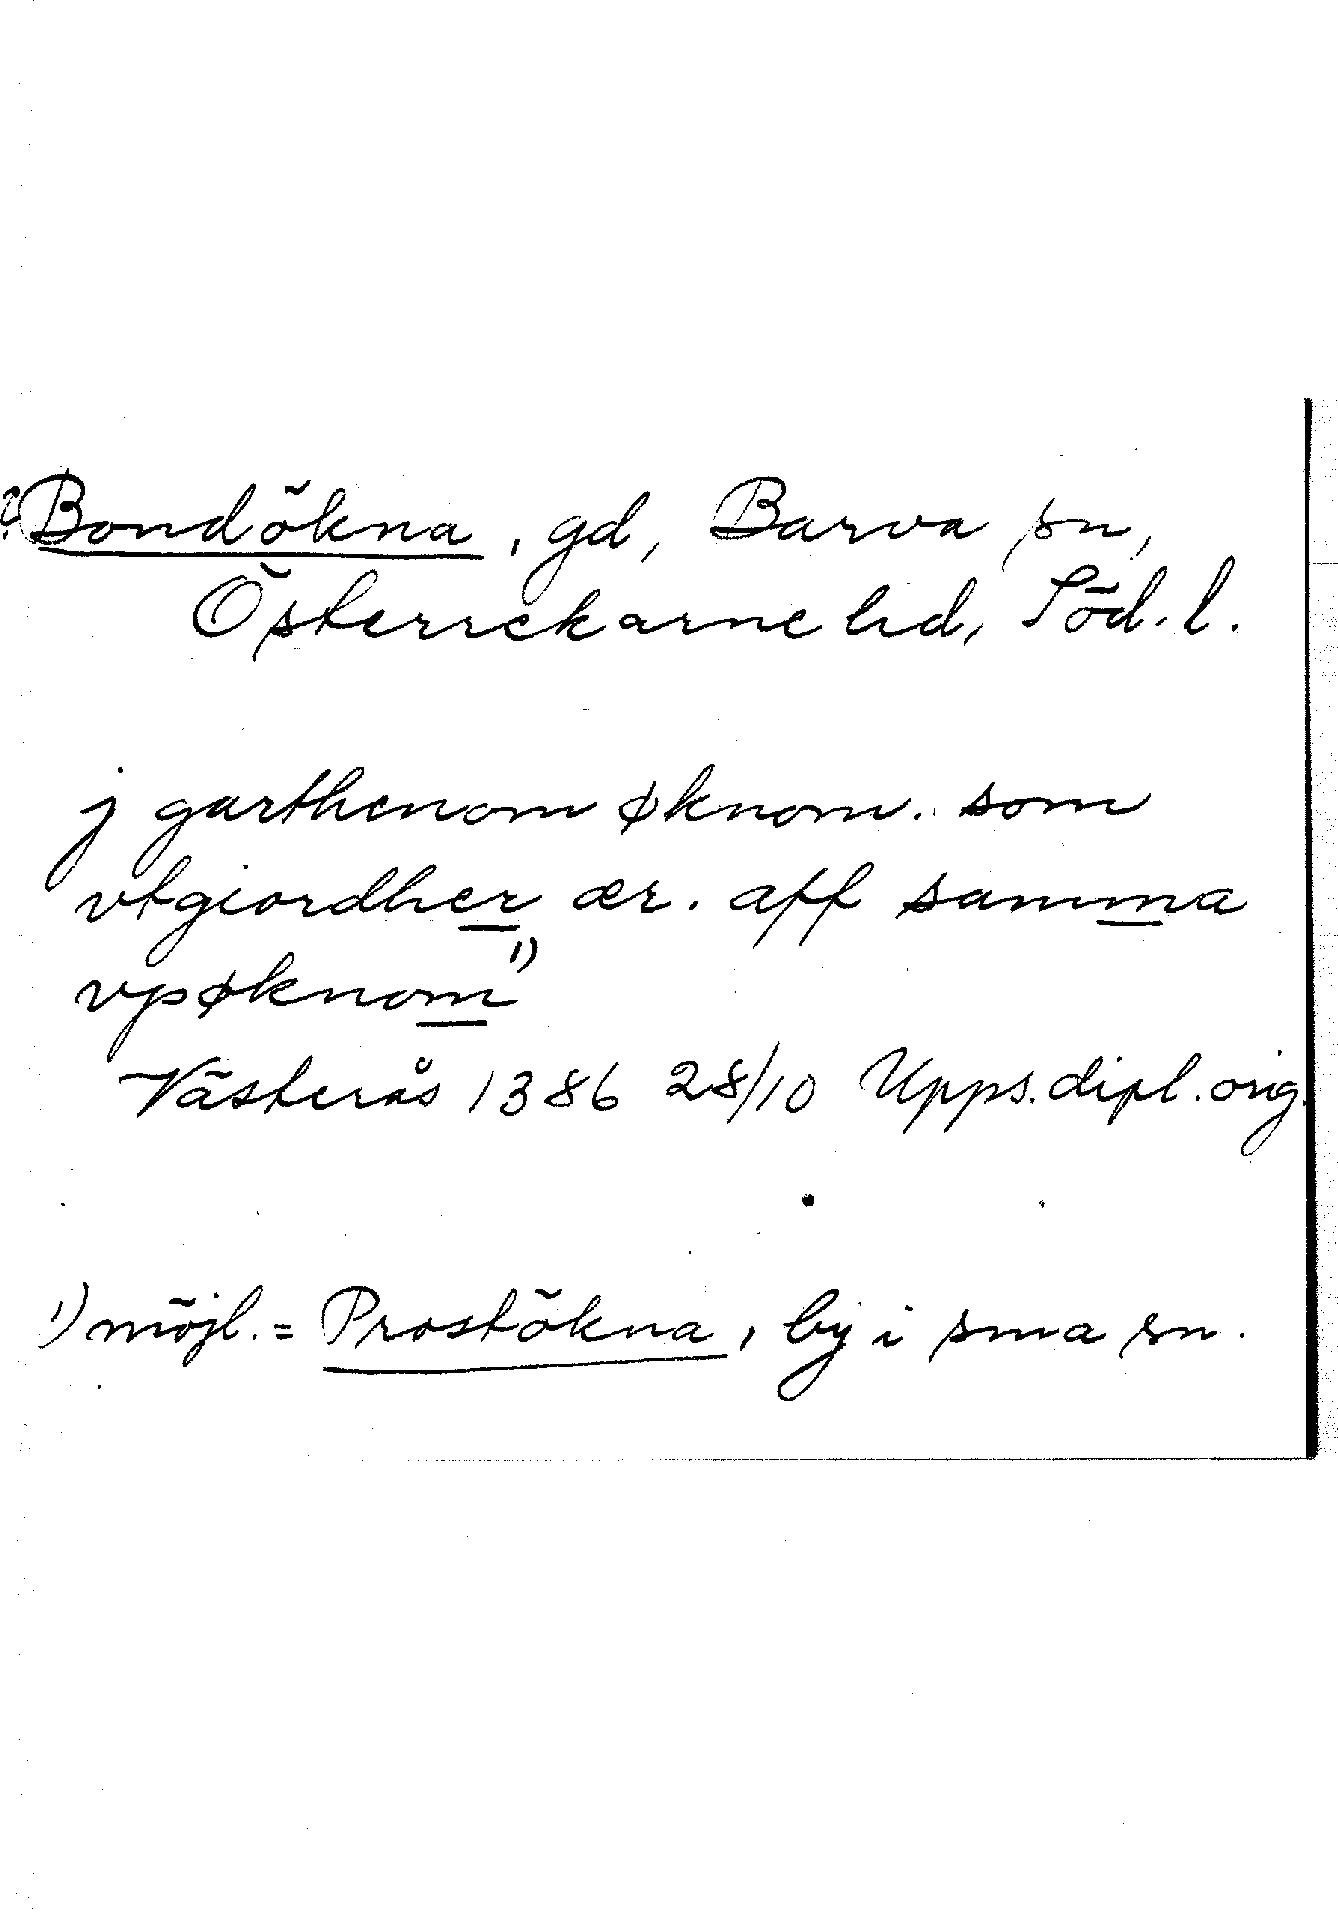 ? Bondökna, gd, Barva sn,
Österrekarne hd, Söd. l.
j garthenom øknom. som
vtgiordher ær. aff samma
vpøknom 1)
Västerås 1386 28/10 Upps. dipl. orig.
1) möjl. = Prostökna, by i sma sn.